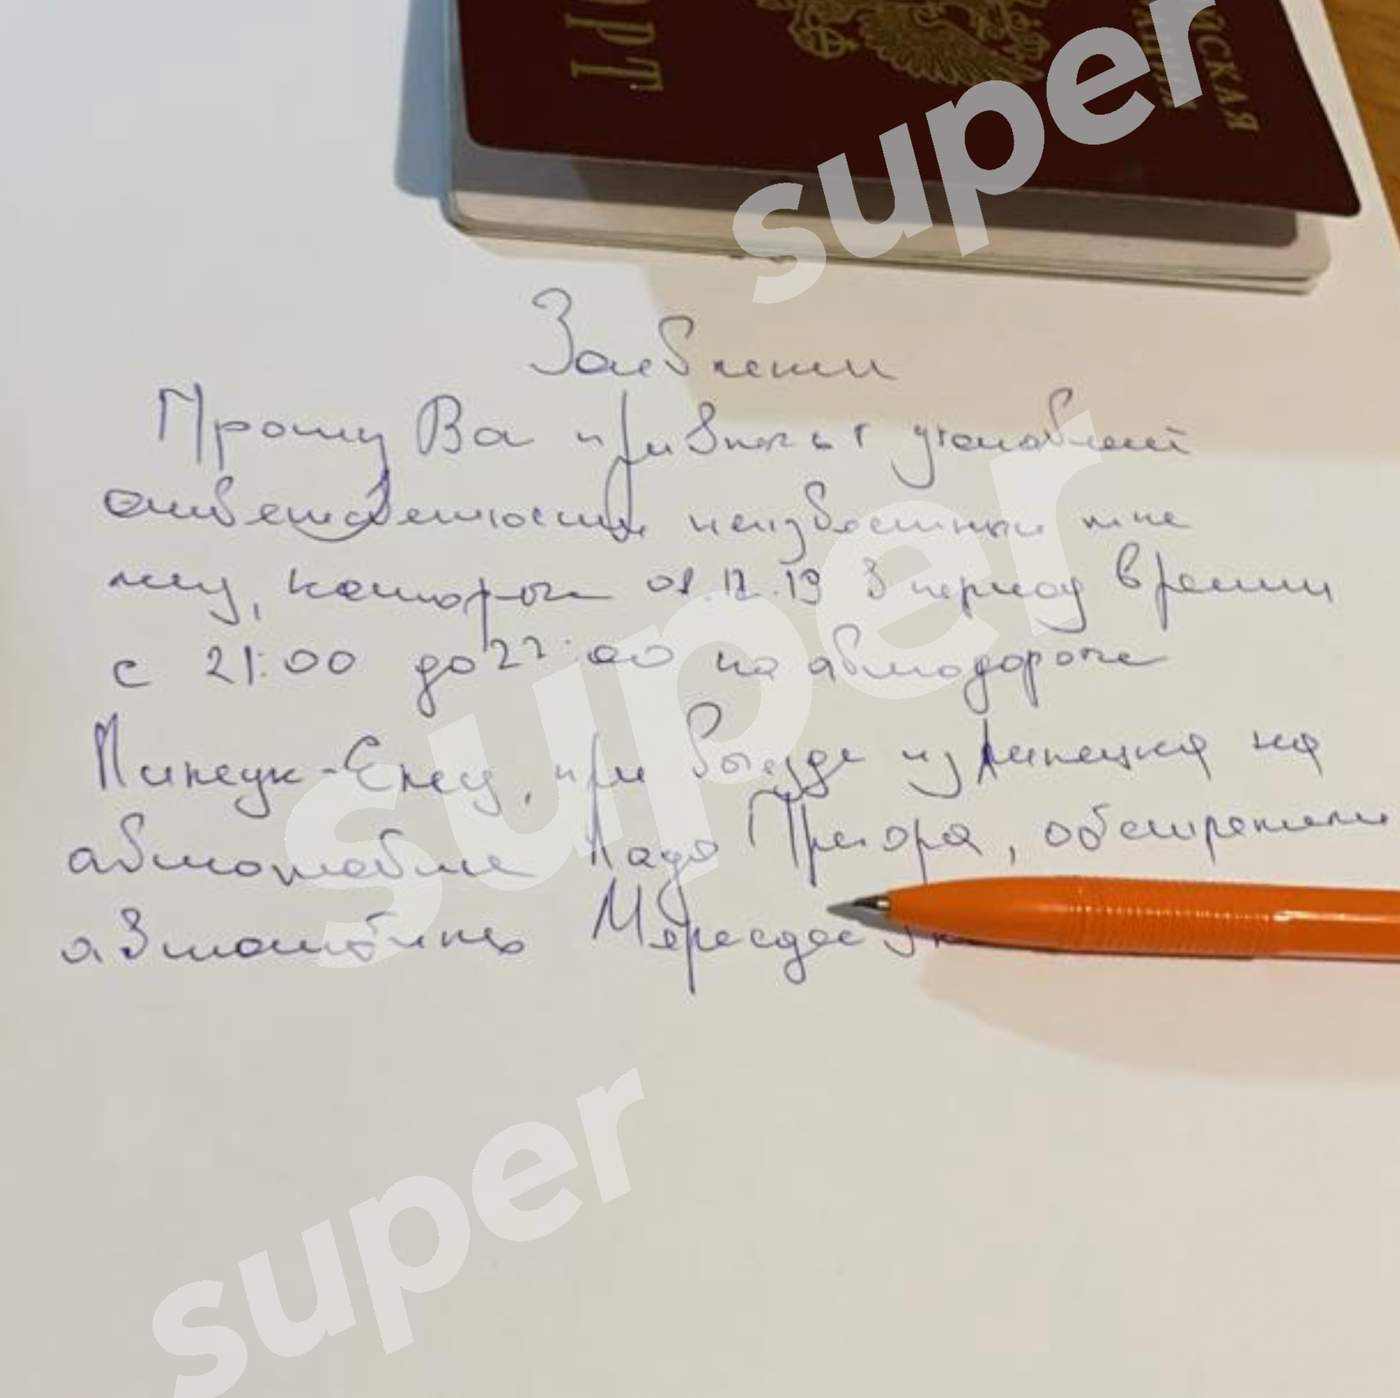 ОРТ
ЙСКАЯ
АЦИЯ
super
Заявлении
Прошу Ва привлечь к уголовной
ответственности неизвестных мне
лиц, которые 08.12.19 в период времени
с 21:00 до 22:00 на автодороге
Липецк-Елец, при выезде из Липецка на
автомобиле Лада Приора, обстреляли
автомобиль Мерседес
super
super